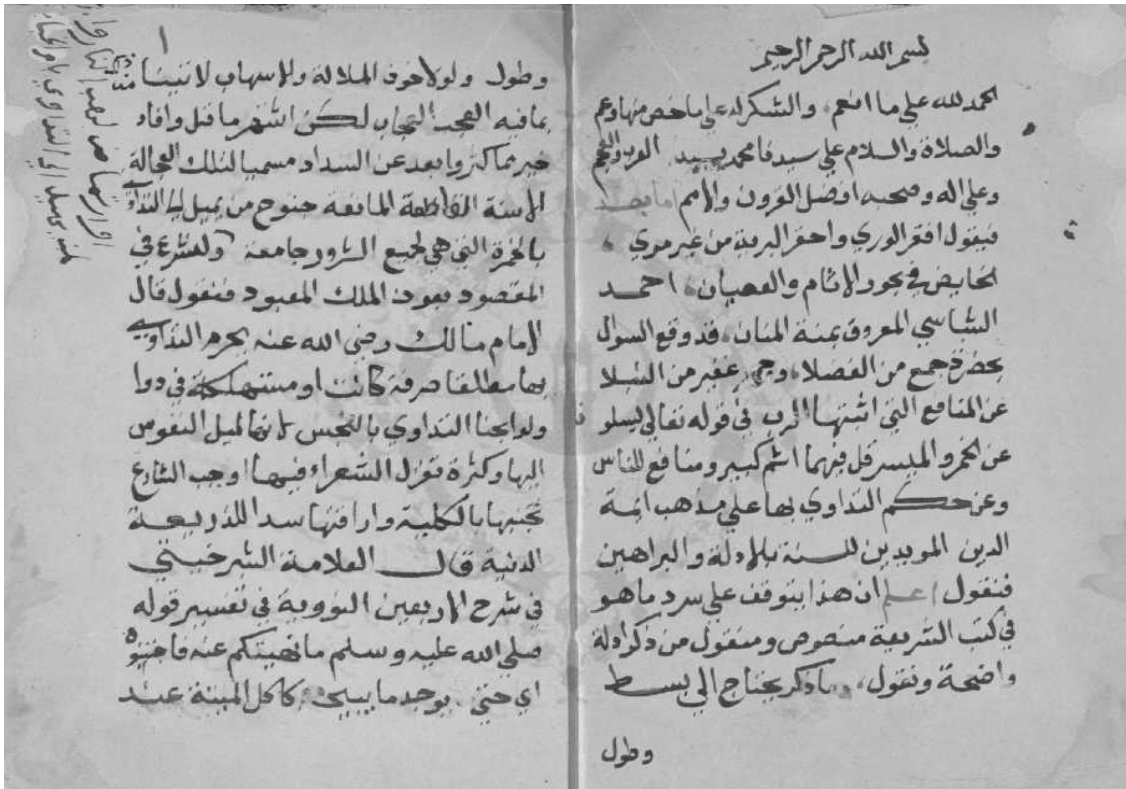 بسم الله الرحمن الرحيم
الحمد لله علي ما انعم، والشكر له علي ما خص منها وعم
والصلاة والسلام علي سيدنا محمد سيد العرب والعجم
وعلي اله وصحبه افضل القرون والامم اما بعد
فيقول افقر الوري واحقر البرية من غير مري،
الخايض في بحور الاثام والعصيان، احمد
المعروف بمنة المنان، قد وقع السوال
بحضرة جمع من الفضلا، وجم غفير من النبلا
عن المنافع التي اثبتها الرب في قوله تعالي يسلو
عن الخمر والميسر قل فيهما اثم كبير ومنافع للناس
وعن حكم التداوي بها علي مذهب ايمة
الدين المويدين للسنة بالادلة والبراهين
فنقول اعلم ان هذا يتوقف علي سرد ما هو
في كتب الشريعة منصوص ومنقول من ذكر ادلة
واضحة ونقول، وما ذكر يحتاج الي بسط
وطول
١
وطول ولولا خوف الملالة والاسهاب لاتينا
بما فيه العجب العجاب لكن اشهر ما قل وافاد
خير مما كثر وابعد عن السداد مسميا لتلك العجالة
الاسنة القاطعة المانعة جنوح من يميل الي التداوي
بالخمرة التي هي لجميع الشرور جامعة ولنشرع في
المقصود بعون الملك المعبود فنقول قال
الامام مالك رضي الله عنه يحرم التداوي
بها مطلقا صرفة كانت او مستهلكة في دوا
ولو ابحنا التداوي بالنجس لانها لميل النفوس
اليها وكثرة تغزل الشعراء فيها اوجب الشارع
تجنبها بالكلية واراقتها سدا للذريعة
الدنية قال العلامة الشبرخيتي
في شرح الاربعين النووية في تفسير قوله
صلي الله عليه وسلم ما نهيتكم عنه فاجتنبوه
اي حتي يوجد ما يبيحه كاكل الميتة عند